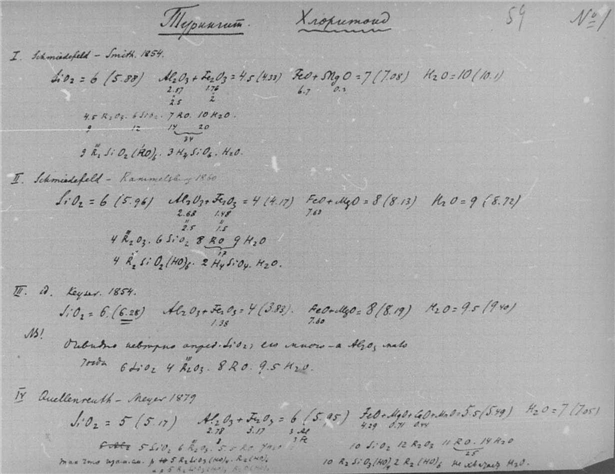 Тюрингит. Хлоритоид 54 № 1
I. Schmiedefeld – Smith. 1854.
SiO₂ = 6 (5.88) Al₂O₃ + Fe₂O₃ = 4.5 (4.33) FeO + MgO = 7 (7.08) H₂O = 10 (10.1)
2.57 1.76 6.7 0.3
2.5 2
4.5 R₂O₃. 6 SiO₂. 7 RO. 10 H₂O.
9 12 14 20
34
3 R₂SiO₂(HO)₆. 3 H₄SiO₄. H₂O.
II. Schmiedefeld – Rammelsberg 1860
SiO₂ = 6 (5.96) Al₂O₃ + Fe₂O₃ = 4 (4.17) FeO + MgO = 8 (8.13) H₂O = 9 (8.72)
2.68 1.48 7.83
2.5 1.5
4 R₂O₃. 6 SiO₂ 8 RO 9 H₂O
4 R₂SiO₂(HO)₆. 2 H₄SiO₄. H₂O.
III. id. Keyser. 1854.
SiO₂ = 6 (6.28) Al₂O₃ + Fe₂O₃ = 4 (3.85) FeO + MgO = 8 (8.19) H₂O = 9.5 (9.40)
1.38 7.60
NB!
Очевидно неверно опред. SiO₂; его много – а Al₂O₃ мало
Тогда 6 SiO₂ 4 R₂O₃. 8 RO. 9.5 H₂O.
IV Quellenreuth – Meyer 1879
SiO₂ = 5 (5.17) Al₂O₃ + Fe₂O₃ = 6 (5.95) FeO + MgO + CaO + MnO = 5.5 (5.49) H₂O = 7 (7.05)
2.78 3.17 4.29 0.71 0.44
5 SiO₂ 6 R₂O₃. 5.5 RO 7 H₂O 10 SiO₂ 12 R₂O₃ 11 RO. 14 H₂O
25
10 R₂SiO₂(HO)₆ 2 R₂(HO)₆ не хватает H₂O.